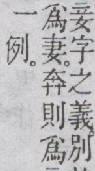 妾字之義別
爲妻。奔則爲
一例。